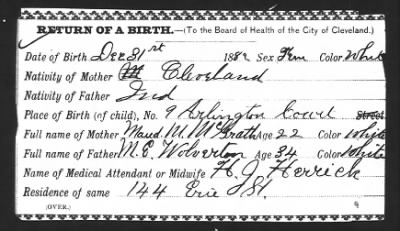 RETURN OF A BIRTH.—(To the Board of Health of the City of Cleveland.)
Date of Birth Dec 31st 188 Sex Fem Color White
Nativity of Mother Cleveland
Nativity of Father Ind
Place of Birth (of child), No. 9 Arlington Court Street
Full name of Mother Maud M. McGrath Age 22 Color White
Full name of Father M. E. Wolverton Age 34 Color White
Name of Medical Attendant or Midwife H. J. Herrick
Residence of same 144 Erie St.
(OVER.) 9